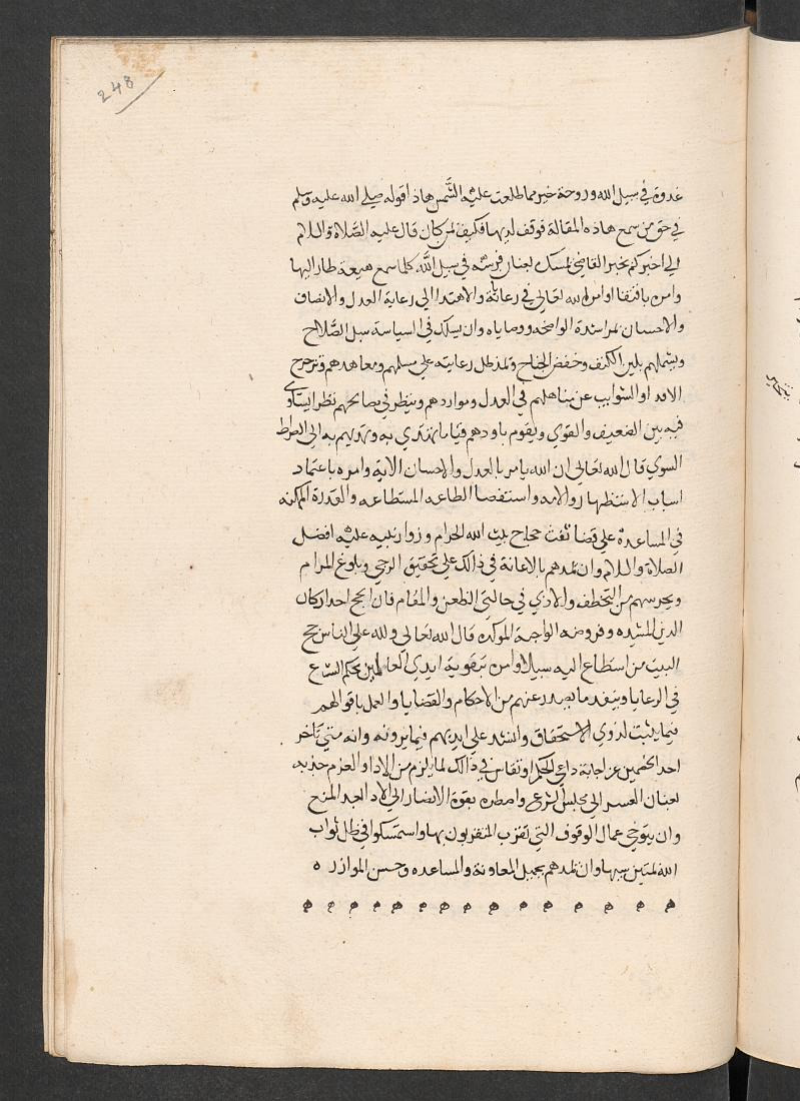 248
غدوة في سبيل الله وروحة خير مما طلعت عليه الشمس هاذا قوله صلى الله عليه وسلم
في حق من سمع هاذه المقالة فوقف لديها فكيف لمن كان قال عليه الصلاة والسلام
الى اخبركم بخير القاضي ممسك لعنان فرسه في سبيل الله كلما سمع هيعة طار اليها
وامره باقتفا اوامر الله تعالى في رعاياه والاهتدا الى رعاية العدل والانصاف
والاحسان بمراشده الواضحه ووصاياه وان يسلك في السياسة سبل الصلاح
ويشملهم بلين الكنف وخفض الجناح وتمد ظل رعايته على مسلمهم ومعاهدهم وتزحزح
الاقدا والشوايب عن مناهلهم في العدل ومواردهم وينظر في مصالحهم نظرا يساوي
فيه بين الضعيف والقوي ويقوم باودهم قياما يهتدي به ويهديهم به الى الصراط
السوي قال الله تعالى ان الله يامر بالعدل والاحسان الاية وامره باعتماد
اسباب الاستظهار والامنه واستقصا الطاعه المستطاعه والقدرة الممكنه
في المساعدة على قضا تفث حجاج بيت الله الحرام وزوار نبيه عليه افضل
الصلاة والسلام وان تمدهم بالاعانة في ذالك على تحقيق الرجى وبلوغ المرام
ويحرسهم من التخطف والاذي في حالتي الظعن والمقام فان الحج احد اركان
الدين المشيده وفروضه الواجبة الموكده قال الله تعالى ولله على الناس حج
البيت من استطاع اليه سبيلا وامره بتقوية ايدي العاملين بحكم الشرع
في الرعايا وتنفيذ ما يصدر عنهم من الاحكام والقضايا والعمل باقوالهم
فيما يثبت لذوي الاستحقاق والشد على ايديهم فيما يرونه وانه متى تاخر
احد الخصمين عن اجابة داعي الحكم او تقاعس في ذالك لما يلزم من الادا والعزم جذبه
بعنان القسر الى مجلس الشرع واضطره بقوة الانصار الى الادا بعد المنع
وان يتوخى عمال الوقوف التي تقرب المتقربون بها واستمسكوا في ظل ثواب
الله المتين بسببها وان تمدهم بجميل المعاونة والمساعده وحسن الموازر ه
ه ه ه ه ه ه ه ه ه ه ه ه ه ه